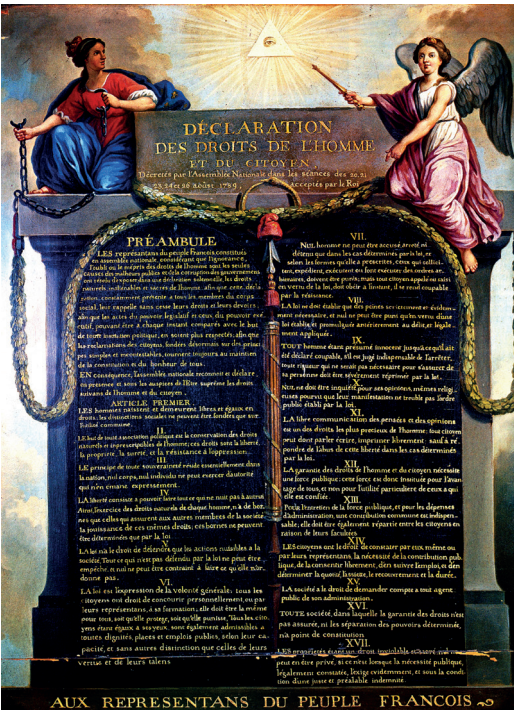 DÉCLARATION
DES DROITS DE L'HOMME
ET DU CITOYEN
Décretés par l'Assemblée Nationale dans les séances des 20, 21
23, 24 et 26 aoûst 1789, acceptés par le Roi
PRÉAMBULE
LES représentans du peuple François, constitués
en assemblée nationale, considérant que l'ignorance,
l'oubli ou le mépris des droits de l'homme sont les seules
causes des malheurs publics et de la corruption des gouvernemens
ont résolu d'exposer dans une déclaration solemnelle, les droits
naturels, inaliénables et sacrés de l'homme, afin que cette décla-
ration, constamment présente à tous les membres du corps
social, leur rappelle sans cesse leurs droits et leurs devoirs,
afin que les actes du pouvoir législatif et ceux du pouvoir exé-
cutif, pouvant être à chaque instant comparés avec le but
de toute institution politique, en soient plus respectés; afin que
les réclamations des citoyens, fondées désormais sur des princi-
pes simples et incontestables, tournent toujours au maintien
de la constitution et du bonheur de tous.
EN conséquence, l'assemblée nationale reconnoît et déclare,
en présence et sous les auspices de l'Etre suprême les droits
suivans de l'homme et du citoyen.
ARTICLE PREMIER.
LES hommes naissent et demeurent libres et égaux en
droits. les distinctions sociales ne peuvent être fondées que sur
l'utilité commune.
II.
LE but de toute association politique est la conservation des droits
naturels et imprescriptibles de l'homme; ces droits sont la liberté,
la propriété, la sureté, et la résistance à l'oppression.
III.
LE principe de toute souveraineté réside essentiellement dans
la nation, nul corps, nul individu ne peut exercer d'autorité
qui n'en émane expressement.
IV.
LA liberté consiste à pouvoir faire tout ce qui ne nuit pas à autrui
Ainsi, l'exercice des droits naturels de chaque homme, n'a de bor-
nes que celles qui assurent aux autres membres de la société
la jouissance de ces mêmes droits; ces bornes ne peuvent
être déterminées que par la loi
V.
LA loi n'a le droit de défendre que les actions nuisibles à la
société. Tout ce qui n'est pas défendu par la loi ne peut être
empêché, et nul ne peut être contraint à faire ce qu'elle n'or-
donne pas.
VI.
LA loi est l'expression de la volonté générale; tous les
citoyens ont droit de concourir personnellement, ou par
leurs représentans, à sa formation; elle doit être la même
pour tous, soit qu'elle protege, soit qu'elle punisse. Tous les cito-
yens étans égaux à ses yeux, sont également admissibles à
toutes dignités, places et emplois publics, selon leur ca-
pacité, et sans autres distinction que celles de leurs
vertus et de leurs talens
VII.
NUL homme ne peut être accusé, arreté, ni
détenu que dans les cas déterminés par la loi, et
selon les formes qu'elle a prescrites, ceux qui sollici-
tent, expédient, exécutent ou font exécuter des ordres ar-
bitraires, doivent être punis; mais tout citoyen appelé ou saisi
en vertu de la loi, doit obéir à l'instant, il se rend coupable
par la résistance.
VIII.
LA loi ne doit établir que des peines strictement et évidem-
ment nécessaire, et nul ne peut être puni qu'en vertu d'une
loi établie et promulguée antérieurement au délit, et légale-
ment appliquée.
IX.
TOUT homme étant présumé innocent jusqu'à ce qu'il ait
été déclaré coupable, s'il est jugé indispensable de l'arrêter,
toute rigueur qui ne serait pas nécessaire pour s'assurer de
sa personne doit être sévèrement réprimée par la loi.
X.
NUL ne doit être inquiété pour ses opinions, mêmes religi-
euses pourvu que leur manifestation ne trouble pas l'ordre
public établi par la loi.
XI.
LA libre communication des pensées et des opinions
est un des droits les plus precieux de l'homme; tout citoyen
peut donc parler, écrire, imprimer librement; sauf à ré-
pondre de l'abus de cette liberté dans les cas déterminés
par la loi.
XII.
LA garantie des droits de l'homme et du citoyen nécessite
une force publique; cette force est donc instituée pour l'avan-
tage de tous, et non pour l'utilité particuliere de ceux a qui
elle est confiée.
XIII.
Pour l'entretien de la force publique, et pour les dépenses
d'administration, une contribution commune est indispen-
sable; elle doit être également répartie entre les citoyens en
raison de leurs facultées
XIV.
LES citoyens ont le droit de constater par eux même ou
par leurs représentans, la nécessité de la contribution pub-
lique, de la consentir librement, d'en suivre l'emploi, et d'en
déterminer la quotité, l'assiette, le recouvrement et la durée.
XV.
LA société a le droit de demander compte a tout agent
public de son administration.
XVI.
TOUTE société, dans laquelle la garantie des droits n'est
pas assurée, ni les séparation des pouvoirs déterminée,
n'a point de constitution
XVII.
LES propriétés étant un droit inviolable et sacré, nul ne
peut en être privé, si ce n'est lorsque la nécessité publique,
légalement constatée, l'exige evidemment, et sous la condi-
tion d'une juste et préalable indemnité.
AUX REPRESENTANS DU PEUPLE FRANCOIS